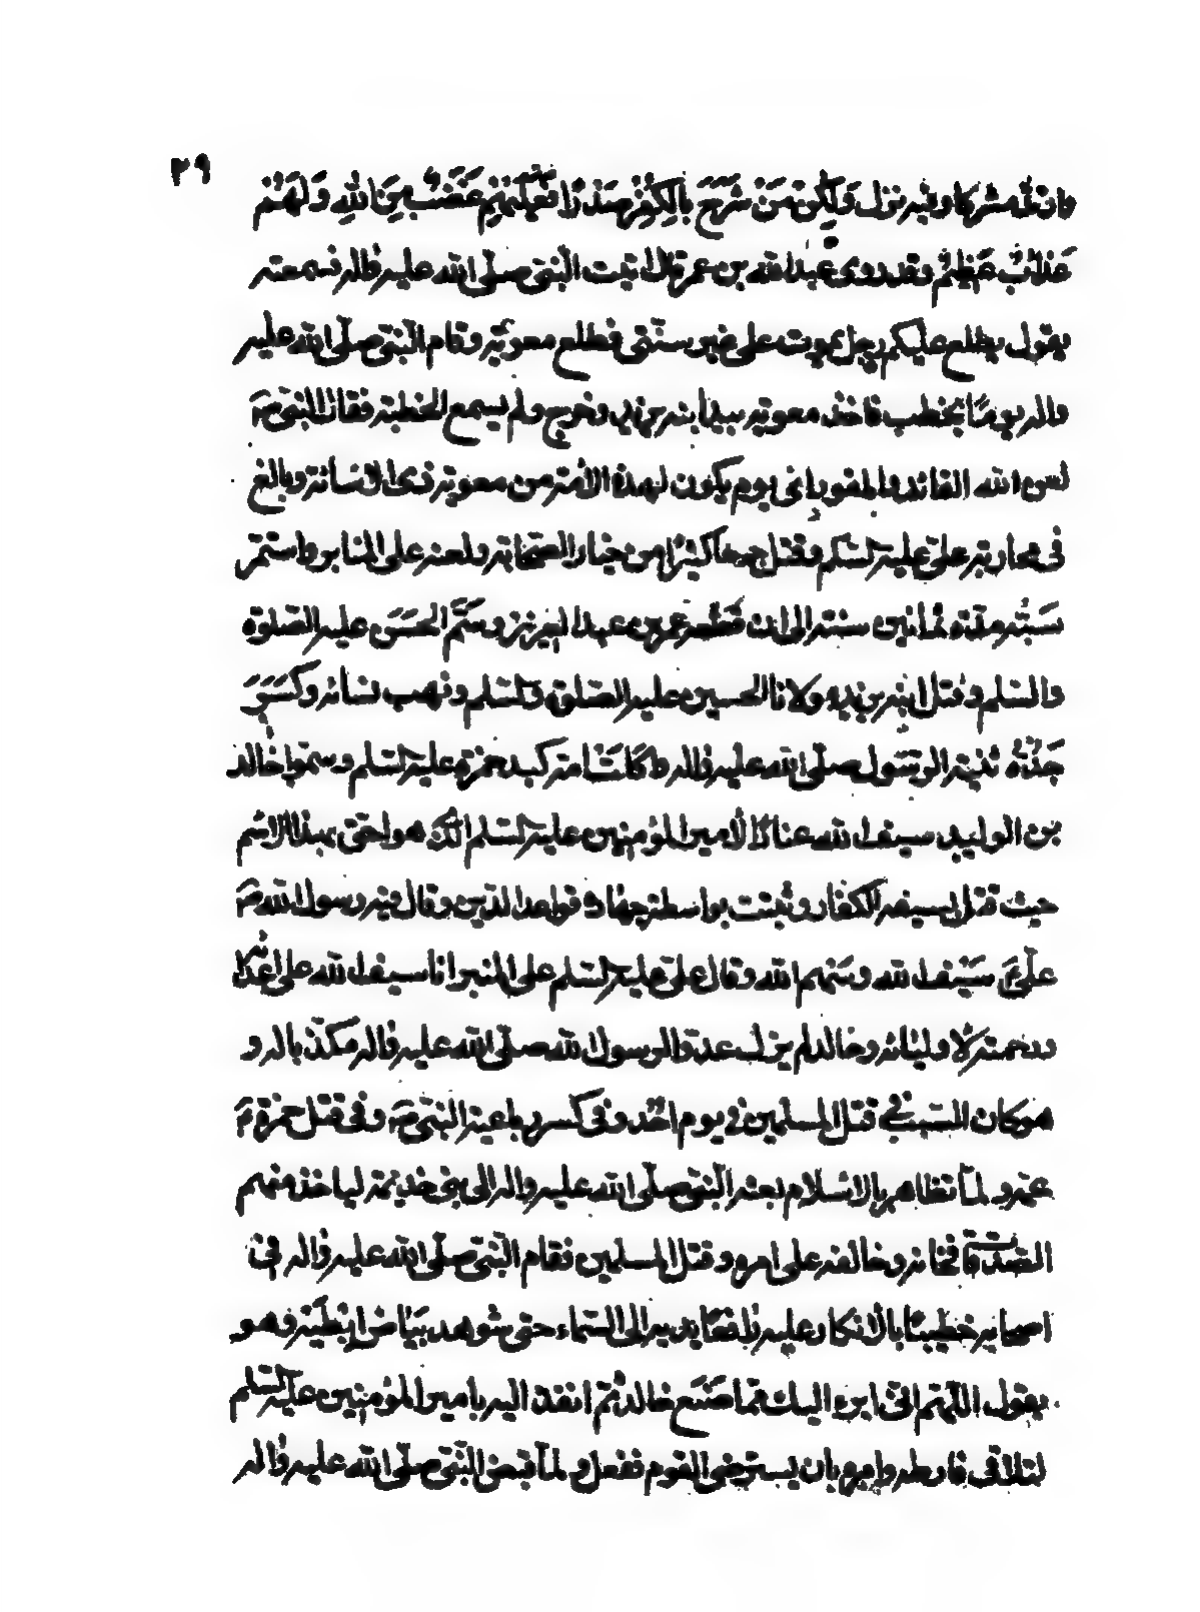 ٢٩
وارتد مشركا وفيه نزل وَلَكِن مَن شَرَحَ بِالكُفرِ صَدْرًا فَعَلَيْهِم غَضَبٌ مِنَ اللهِ وَلَهُم
عَذَابٌ عَظِيمٌ وقد روى عبد الله بن عمر قال اتيت النبى صلى الله عليه واله فسمعته
يقول يطلع عليكم رجل يموت على غير سنتى فطلع معوية وقام النبى صلى الله عليه
واله يوما يخطب فاخذ معوية بيد ابنه يزيد وخرج ولم يسمع الخطبة فقال النبى ص
لعن الله القائد والمقود اى يوم يكون لهذه الامة من معوية ذى الاسائة وبالغ
فى محاربة على عليه السلم وقتل جمعا كثيرا من خيار الصحابة ولعنه على المنابر واستمر
سبه مدة ثمانين سنة الى ان قطعه عمر بن عبد العزيز وسم الحسن عليه الصلوة
والسلم وقتل ابنه يزيد مولانا الحسين عليه الصلوة والسلم ونهب نسائه وكسر
جده ثنية الرسول صلى الله عليه واله واكلت امه كبد حمزة عليه السلم وسموا خالد
بن الوليد سيف الله عنادا لامير المؤمنين عليه السلم الذى هو احق بهذا الاسم
حيث قتل بسيفه الكفار وثبتت بواسطة جهاده قواعد الدين وقال فيه رسول الله ص
على سيف الله وسهم الله وقال على عليه السلم على المنبر انا سيف الله على اعدائه
ورحمته لاوليائه وخالد لم يزل عدوا لرسول الله صلى الله عليه واله مكذبا له و
هو كان السبب فى قتل المسلمين فى يوم احد وفى كسر رباعية النبى ص وفى قتل حمزة
عمه ولما تظاهر بالاسلام بعثه النبى صلى الله عليه واله الى بنى خذيمة لياخذ منهم
الصدقات فخانه وخالفه على امره وقتل المسلمين فقام النبى صلى الله عليه واله فى
اصحابه خطيبا بالانكار عليه رافعا يديه الى السماء حتى شوهد بياض ابطيه وهو
يقول اللهم انى ابرء اليك مما صنع خالد ثم انفذ اليه بامير المؤمنين عليه السلم
لتلافى فارطه وامره بان يسترضى القوم ففعل ولما قبض النبى صلى الله عليه واله